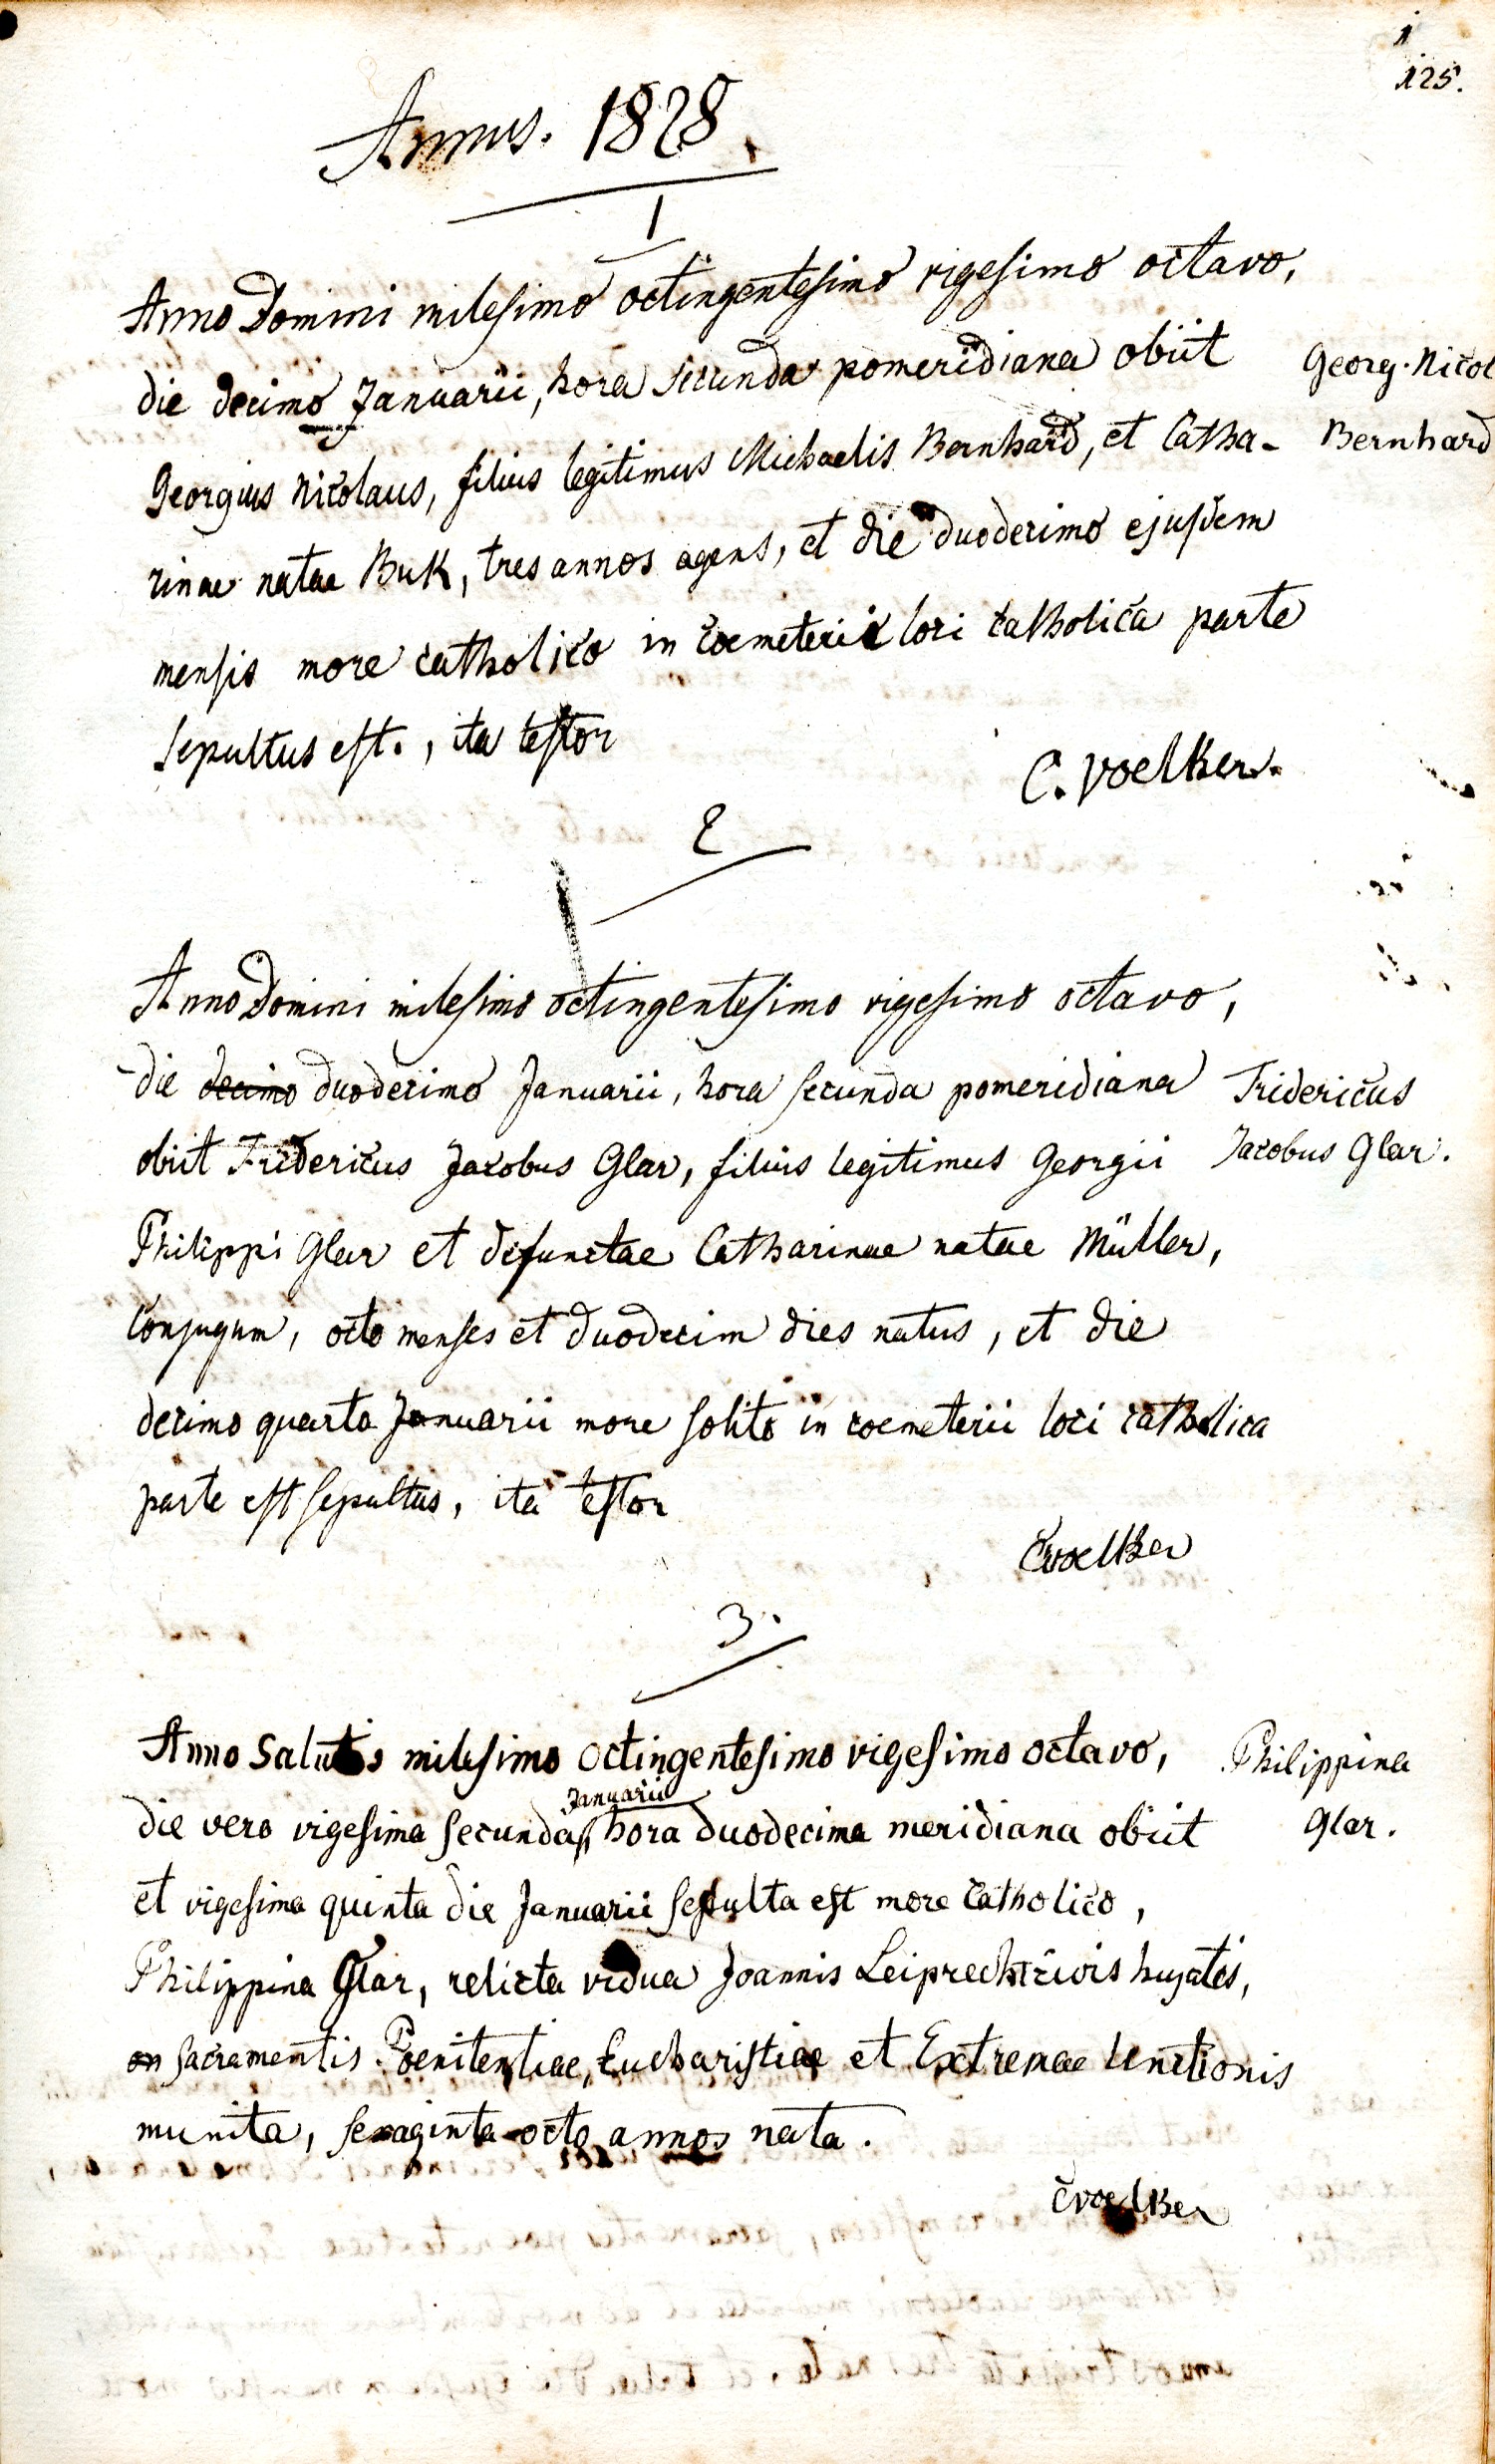 1
125.
Annus. 1828.
1
Anno Domini milesimo octingentesimo vigesimo octavo,
die decimo Januarii, hora secunda pomeridiana obiit
Georg. Nicol
Georgius Nicolaus, filius legitimus Michaelis Bernhard, et Catha-
Bernhard
rinae natae Buk, tres annos agens, et die duodecimo ejusdem
mensis more catholico in coemeterii loci catholica parte
sepultus est., ita testor
C. Voelker.
2
Anno Domini milesimo octingentesimo vigesimo octavo,
die decimo duodecimo Januarii, hora secunda pomeridiana
Fridericus
obiit Fridericus Jacobus Glar, filius legitimus Georgii
Jacobus Glar.
Philippi Glar et defunctae Catharinae natae Müller,
Conjugum, octo menses et duodecim dies natus, et die
decimo quarto Januarii more solito in coemeterii loci catholica
parte est sepultus, ita testor
CVoelker
3.
Anno Salutis milesimo octingentesimo vigesimo octavo,
Philippina
Januarii
die vero vigesima secunda hora duodecima meridiana obiit
Glar.
et vigesima quinta die Januarii sepulta est more catholico,
Philippina Glar, relicta vidua Joannis Leiprecht civis hujatis,
sacramentis Poenitentiae, Eucharistiae et Extremae Unctionis
munita, sexaginta octo annos nata.
CVoelker